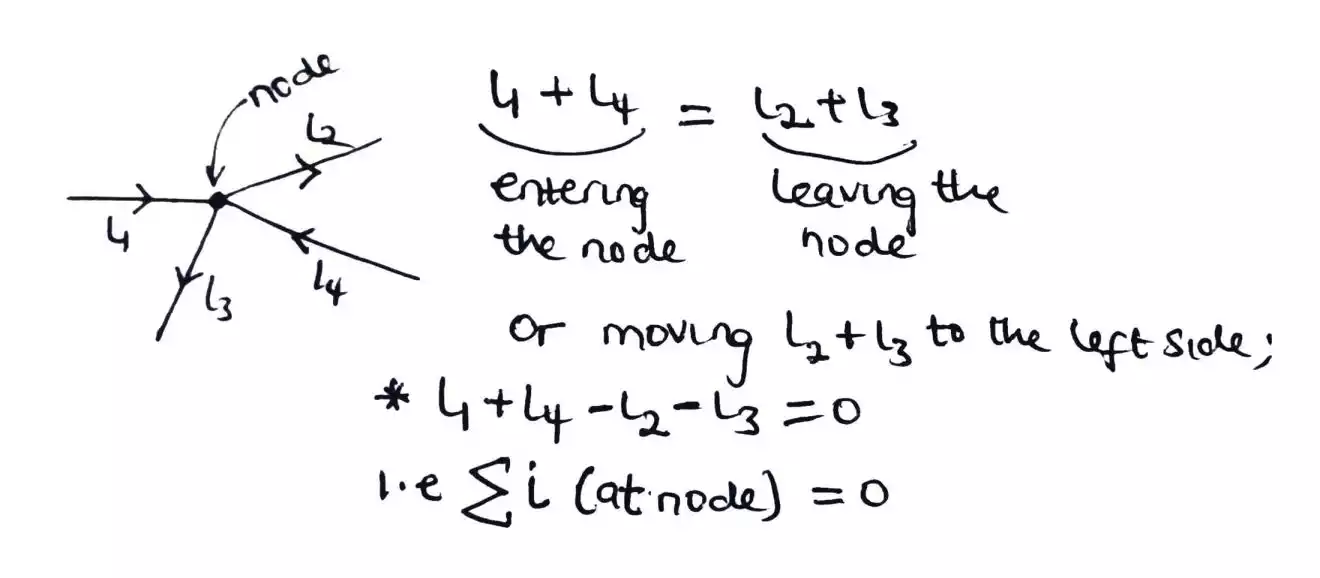 node
i₂
i₁
i₃
i₄
i₁ + i₄ = i₂ + i₃
entering the node
leaving the node
or moving i₂ + i₃ to the left side;
* i₁ + i₄ - i₂ - i₃ = 0
i.e ∑ i (at node) = 0